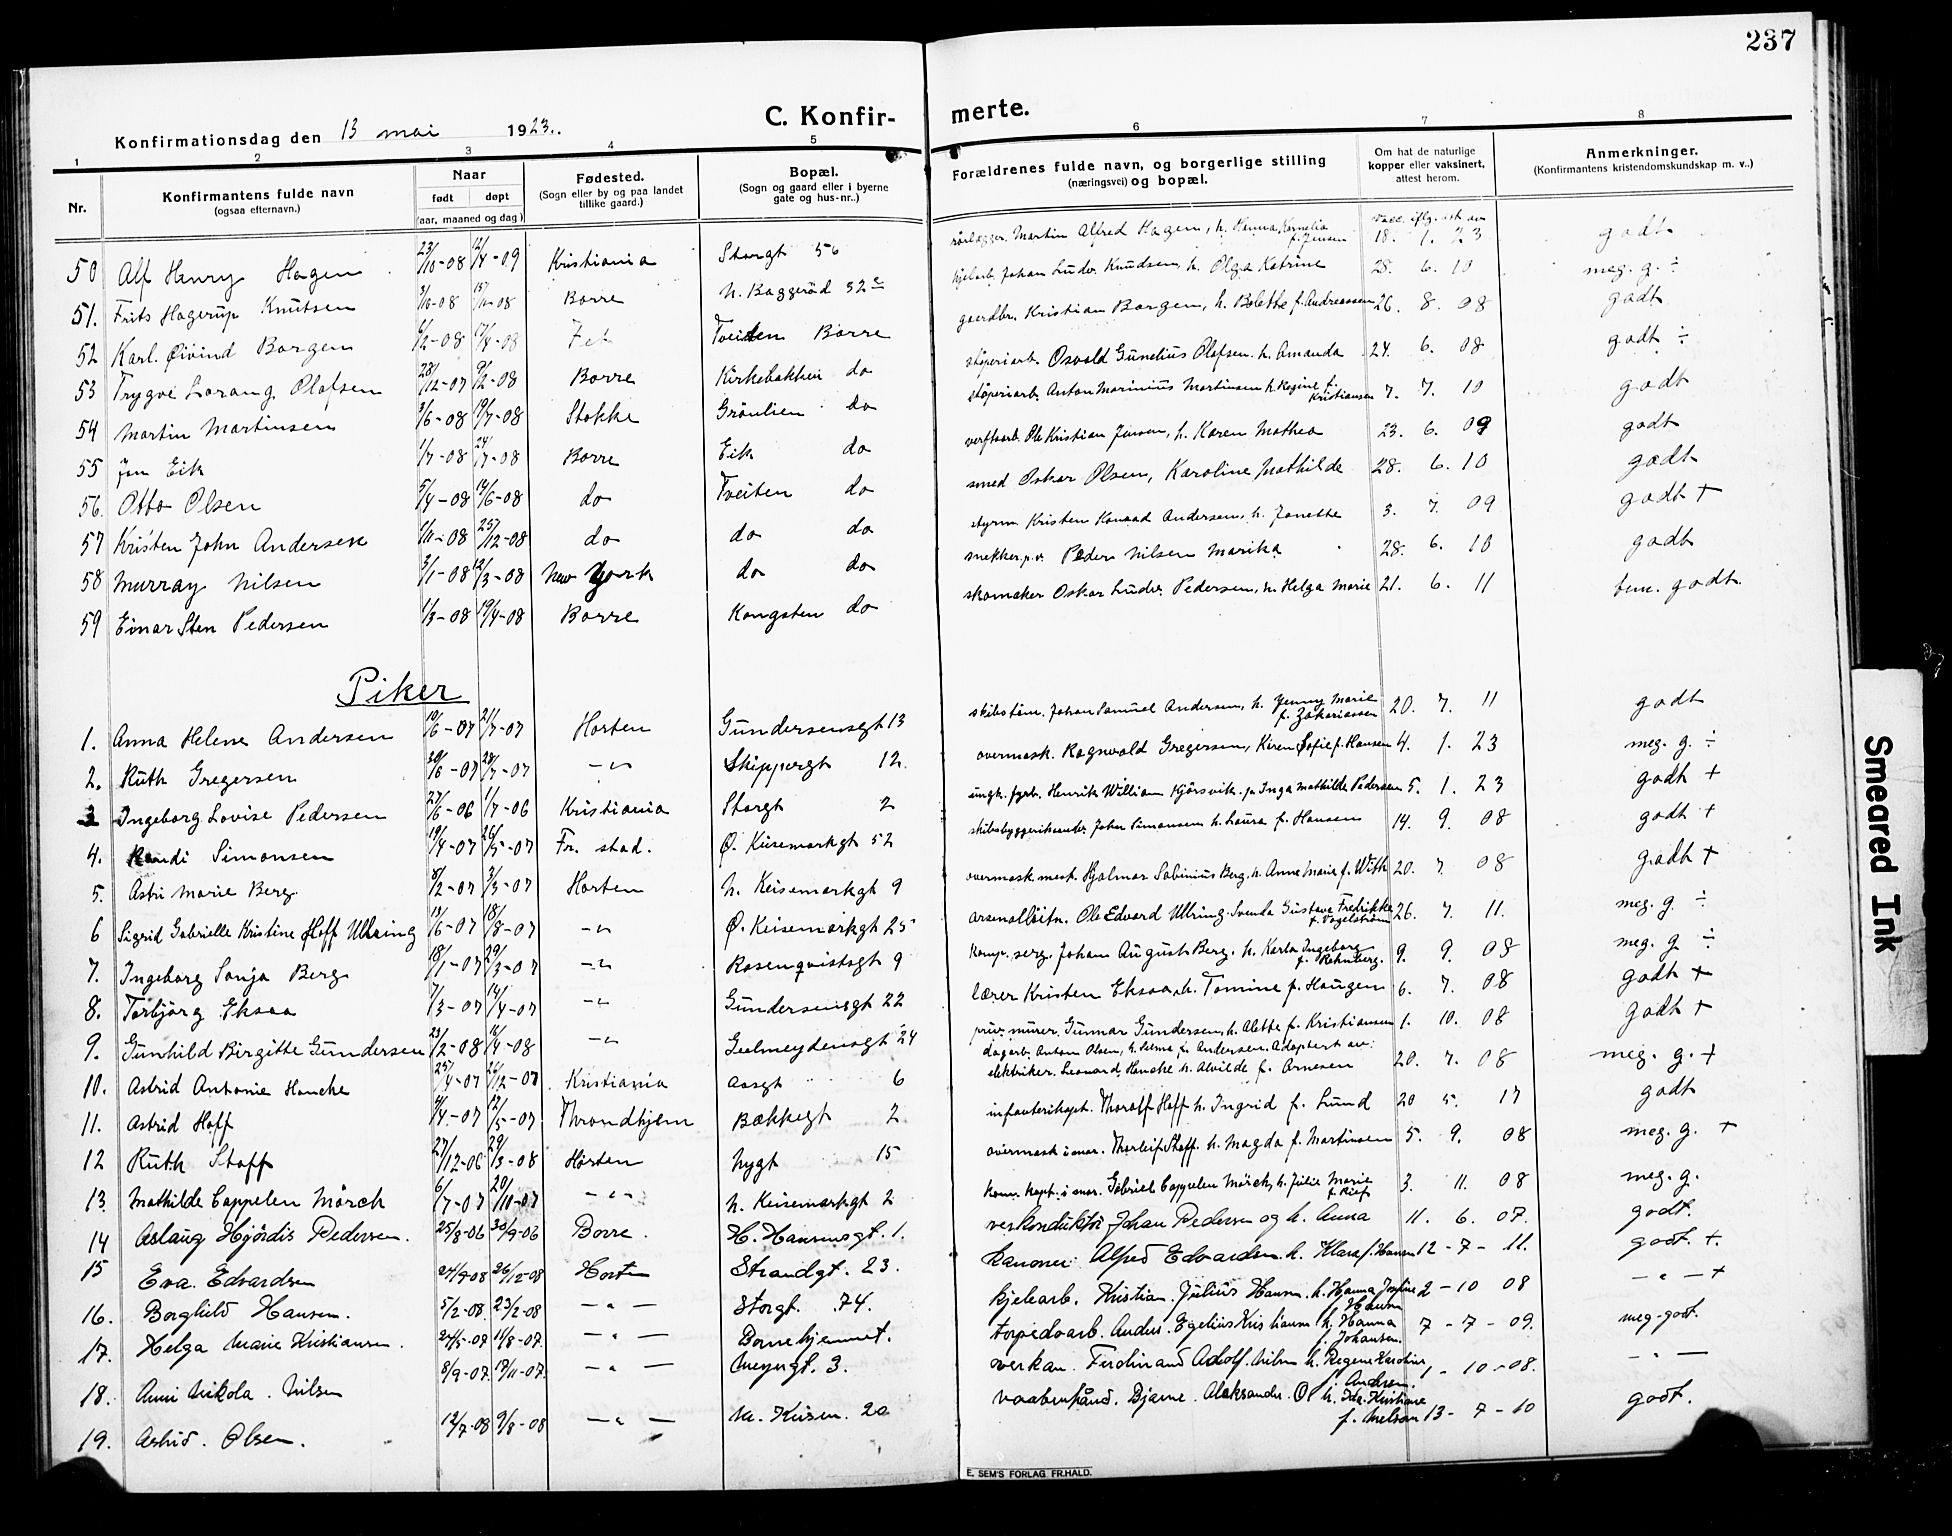 237
C. Konfir- merte.
Konfirmationsdag den 13 mai 1923.
1 2 3 4 5 6 7 8
Nr. Konfirmantens fulde navn (ogsaa efternavn.) Naar født døpt (aar, maaned og dag) Fødested. (Sogn eller by og paa landet tillike gaard.) Bopæl. (Sogn og gaard eller i byerne gate og hus-nr..) Forældrenes fulde navn, og borgerlige stilling (næringsvei) og bopæl. Om hat de naturlige kopper eller vaksinert, attest herom. Anmerkninger. (Konfirmantens kristendomskundskap m. v..)
50 Alf Henry Hagen 23/10-08 12/4-09 Kristiania Storgt 56 rørlægger. Martin Alfred Hagen, h. Hanna Kornelia f. Jensen 18. 1. 23 godt
51. Frits Hagerup Knutsen Borre N. Baggerød 52 c kjelarb. Johan Ludv. Knudsen, h. Olga Katrine 28. 6. 10 meg. g. ÷
52 Karl Øivind Borgen 6/2-08 Tveiten Borre gaardbr. Kristian Borgen, h. Bolette f. Andreassen 26. 8. 08 godt
53 Trygve Lorang Olafsen 28/12-07 9/2-08 Borre Kirkebakken do støperiarb. Osvald Gunelius Olafsen. h. Amanda 24. 6. 08 godt ÷
54 Martin Martinsen 3/6-08 19/7-08 Stokke Grönlien do støperiarb. Anton Marinius Martinsen h. Regine f. Kristiansen 7. 7. 10 godt
55 Jon Eik 1/7-08 24/7-08 Borre Eik do verftsarb. Ole Kristian Jensen, h. Karen Mathea 23. 6. 09 godt
56. Otto Olsen 5/4-08 14/6-08 do Tveiten do smed Oskar Olsen, Karoline Mathilde 28. 6. 10 godt
57 Kristen John Andersen 1/11-08 25/12-08 do do do styrm. Kristen Konrad Andersen, h. Janette 3. 7. 09 godt +
58 Murray Nilsen 3/1-08 12/3-08 New York do do snekker p.v. Peder Nilsen Marika 28. 6. 10 godt
59 Einar Sten Pedersen 1/3-08 19/4-08 Borre Kongsten do skomaker Oskar Ludv. Pedersen, h. Helga Marie 21. 6. 11 tem. godt.
Piker
1. Anna Helene Andersen 10/6-07 21/7-07 Horten Gundersensgt 13 skibstøm. Johan Samuel Andersen, h. Jenny Marie f. Zakariassen 20. 7. 11 godt
2. Ruth Gregersen 20/6-07 28/7-07 -"- Skippergt 12. overmask. Ragnvald Gregersen, Karen Sofie f. Hansen 4. 1. 23 meg. g. ÷
3 Ingeborg Lovise Pedersen 27/6-06 1/7-06 Kristiania Storgt 2 ungk. fyrb. Henrik William Kjörsvik. p. Inga Mathilde Pedersen 5. 1. 23 godt +
4. Randi Simonsen 19/4-07 26/5-07 Fr. stad. Ø. Keisemarkgt 52 John Simonsen h. Laura f. Hansen 14. 9. 08 godt +
5. Astri Marie Berg 8/2-07 3/3-07 Horten N. Keisemarkgt 9 overmask. mest. Hjalmar Sabinius Berg, h. Anne Marie f. With 20. 7. 08 godt +
6 Sigrid Gabrielle Kristine Hoff Ullring 19/6-07 18/8-07 -"- Ø. Keisemarkgt 25 arsenalløitn. Ole Edvard Ullring Svenda Gustava Fredrikke f. Vogelstrøm 26. 7. 11. meg. g. ÷
7. Ingeborg Sonja Berg 18/1-07 29/3-07 -"- Rosenqvistsgt 9 komp. serg. Johan August Berg, h. Karla Ingeborg f. Rehnberg. 9. 9. 08 meg. g ÷
8. Torbjørg Eksaa 7/3-07 14/4-07 -"- Gundersensgt 22 lærer Kristen Eksaa, h. Tomine f. Haugen 6. 7. 08 godt +
9. Gunhild Birgitte Gundersen 23/2-08 12/4-08 -"- Geelmeydensgt 24 priv. murer. Gunnar Gundersen, h. Alette f. Kristiansen 1. 10. 08 godt +
10. Astrid Antonie Hancke 25/4-07 26/12-07 Kristiania Aasgt 6 dagarb. Anton Olsen, h. Selma f. Andersen. Adoptert av: elektriker. Leonard Hancke h. Alvilde f. Arnesen 20. 7. 08 meg. g. +
11. Astrid Hoff 9/4-07 12/5-07 Throndhjem Bækkegt 2 infanterikapt. Thoralf Hoff h. Ingrid f. Lund 20 5. 17 godt
12 Ruth Staff 27/12-06 29/3-08 Horten Nygt 15 overmask i mar. Thorleif Staff. h. Magda f. Martinsen 5. 9. 08 meg. g. +
13. Mathilde Cappelen Mörch 6/7-07 20/10-07 -"- N. Keisemarkgt 2 kom. kapt. i mar. Gabriel Cappelen Mörch, h. Julie Marie 3. 11. 08 meg. g.
14 Aslaug Hjördis Pedersen. 25/8-06 30/9-06 Borre. H. Hansensgt. 1. verkonduktör Johan Pedersen og h. Anna 11. 6. 07. godt.
15 Eva. Edvardsen 24/9-08 26/12-08 Horten Strandgt. 23. kanoner Alfred Edvardsen. h. Klara f. Hansen 12-7-11. godt. +.
16. Borghild Hansen. 5/2-08. 23/2-08 -"- Storgt. 74. kjelearb. Kristian. Julius Hansen. h. Hanna Josefine f. Hansen 2-10 08 -"- +
17. Helga Marie Kristiansen. 24/5-07 11/8-07. -"- Barnehjemmet. torpedoarb. Anders. Egelius Kristiansen h. Hanna f. Johansen. 7-7-09. meg. godt.
18. Anni Nikola. Nilsen 8/9-07. 17/11-07. -"- Meyersgt. 3. Ferdinand Adolf. Nilsen h. Regine Karoline f. Andsen. 1-10-08. -"-
19. Astrid. Olsen. 12/7-08 9/8-08 -"- N. Keisem. 20 vaabenhånd. Bjarne. Aleksander. Ol h. Ida Kristiane f. Nielsen 13-7-10 godt.
E. SEM'S FORLAG FR.HALD.
Smeared Ink